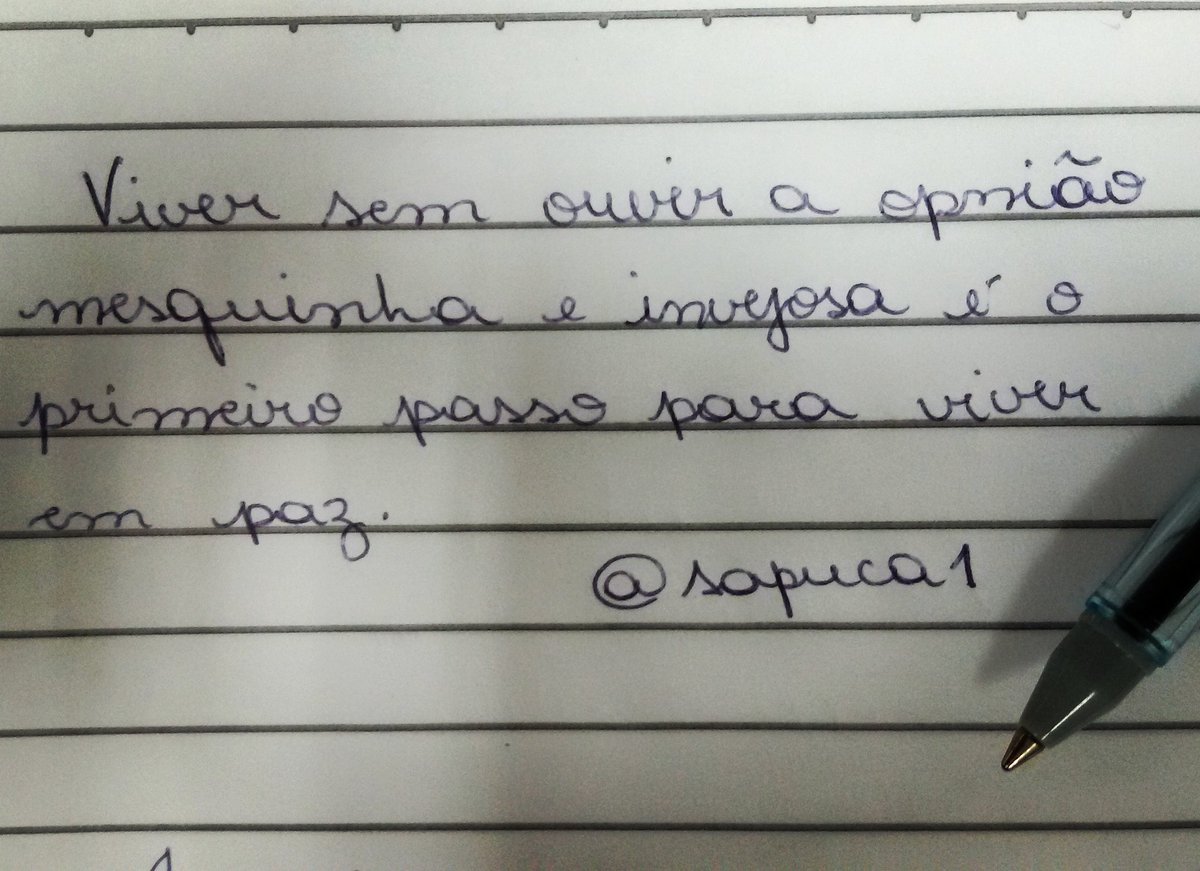 Viver sem ouvir a opnião
mesquinha e invejosa é o
primeiro passo para viver
em paz.
@sapuca1